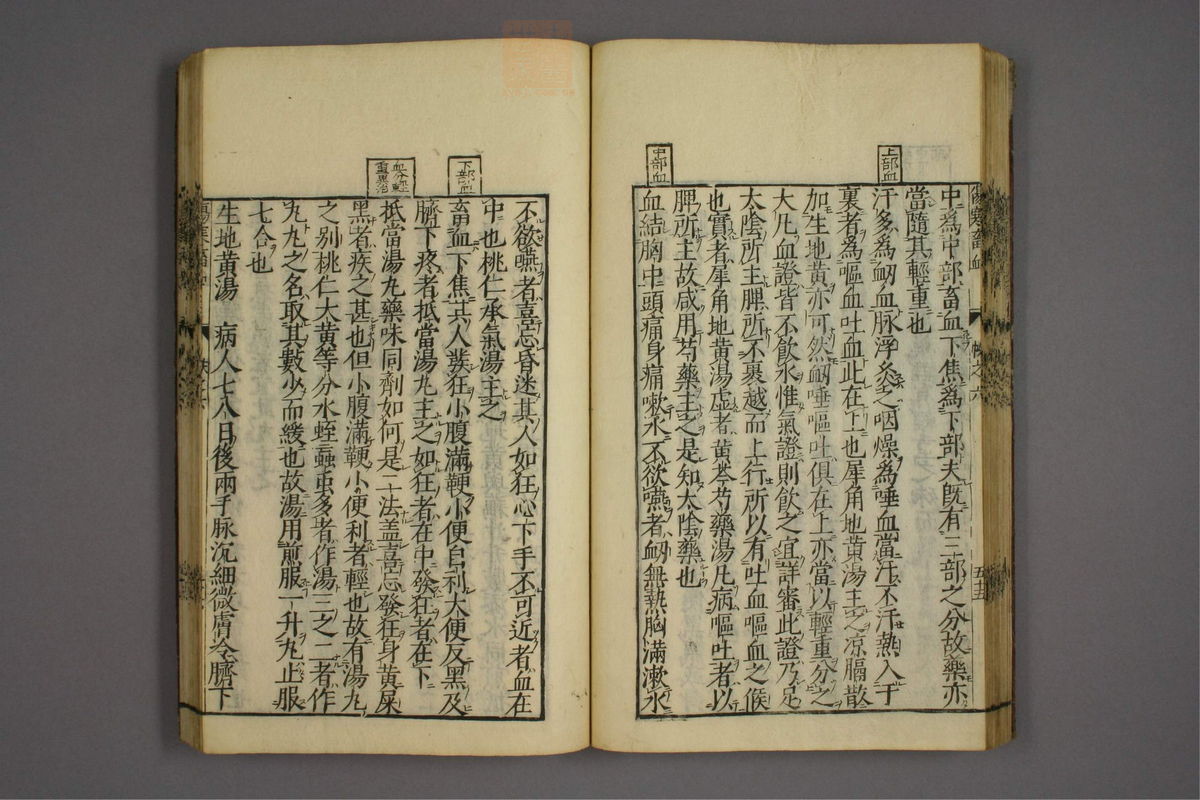 上部血
中為中部畜血下焦為下部夫既有三部之分故藥亦
當隨其輕重也
汗多為衂血脉浮灸之咽燥為唾血當汗不汗熱入于
裏者為嘔血吐血此在上也犀角地黄湯主之凉膈散
加生地黄亦可然衂唾嘔吐俱在上亦當以輕重分之
大凡血證皆不飲水惟氣證則飲之宜詳審此證乃足
太陰所主脾所不裹越而上行所以有吐血嘔血之候
也實者犀角地黄湯虚者黄芩芍藥湯凡病嘔吐者以
脾所主故咸用芍藥主之是知太陰藥也
中部血
血結胸中頭痛身痛漱水不欲嚥者衂無熱胸滿漱水
不欲嚥者喜忘昏迷其人如狂心下手不可近者血在
中也桃仁承氣湯主之
下部血
畜血下焦其人發狂小腹滿鞕小便自利大便反黑及
臍下疼者抵當湯丸主之如狂者在中發狂者在下
血分輕
重異治
抵當湯丸藥味同劑如何是二法盖喜忘發狂身黄屎
黑者疾之甚也但小腹滿鞕小便利者輕也故有湯丸
之別桃仁大黄等分水蛭蝱虫多者作湯三之二者作
丸丸之名取其數少而緩也故湯用煎服一升丸止服
七合也
生地黄湯　病人七八日後兩手脉沉細微膚冷臍下